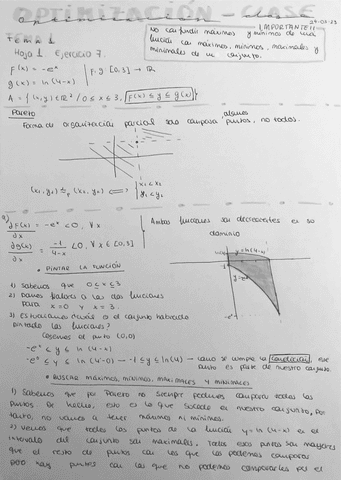 OPTIMIZACIÓN - CLASE
TEMA 1
¡IMPORTANTE!!
No confundir máximos y mínimos de una
función con máximos, mínimos, maximales y
minimales de un conjunto.
Hoja 1 Ejercicio 7.
f(x) = -eˣ | f, g: [0,3] → ℝ
g(x) = ln(4-x)
A = {(x,y) ∈ ℝ² / 0 ≤ x ≤ 3, f(x) ≤ y ≤ g(x)}
PARETO
algunos
Forma de organización parcial solo compara puntos, no todos.
(x₁,y₁) ≤p (x₂,y₂) ⟺ { x₁ ≤ x₂
y₁ ≤ y₂
a)
∂f(x)/∂x = -eˣ < 0, ∀x
∂g(x)/∂x = -1/(4-x) < 0, ∀x ∈ [0,3]
Ambas funciones son decrecientes en su
dominio
• PINTAR LA FUNCIÓN
1) Sabemos que 0 ≤ x ≤ 3
2) Damos valores a las dos funciones
para x = 0 y x = 3
y = ln(4-x)
3) el conjunto
pintado las funciones?
Cogemos el punto (0,0)
-eˣ ≤ y ≤ ln(4-x)
-eˣ ≤ y ≤ ln(4-0) → -1 ≤ y ≤ ln(4) → como se cumple la condición, este
punto es parte de nuestro conjunto.
• BUSCAR MÁXIMOS, MÍNIMOS, MAXIMALES Y MINIMALES
1) Sabemos que por Pareto no siempre podemos comparar todos los
puntos. De hecho, esto es lo que sucede en nuestro conjunto, por
tanto, no vamos a tener máximos ni mínimos.
2) Vemos que todos los puntos de la función y = ln(4-x) en el
intervalo del conjunto son maximales. Todos esos puntos son mayores
que el resto de puntos con los que los podemos comparar
pero hay puntos con los que no podemos compararlos por el